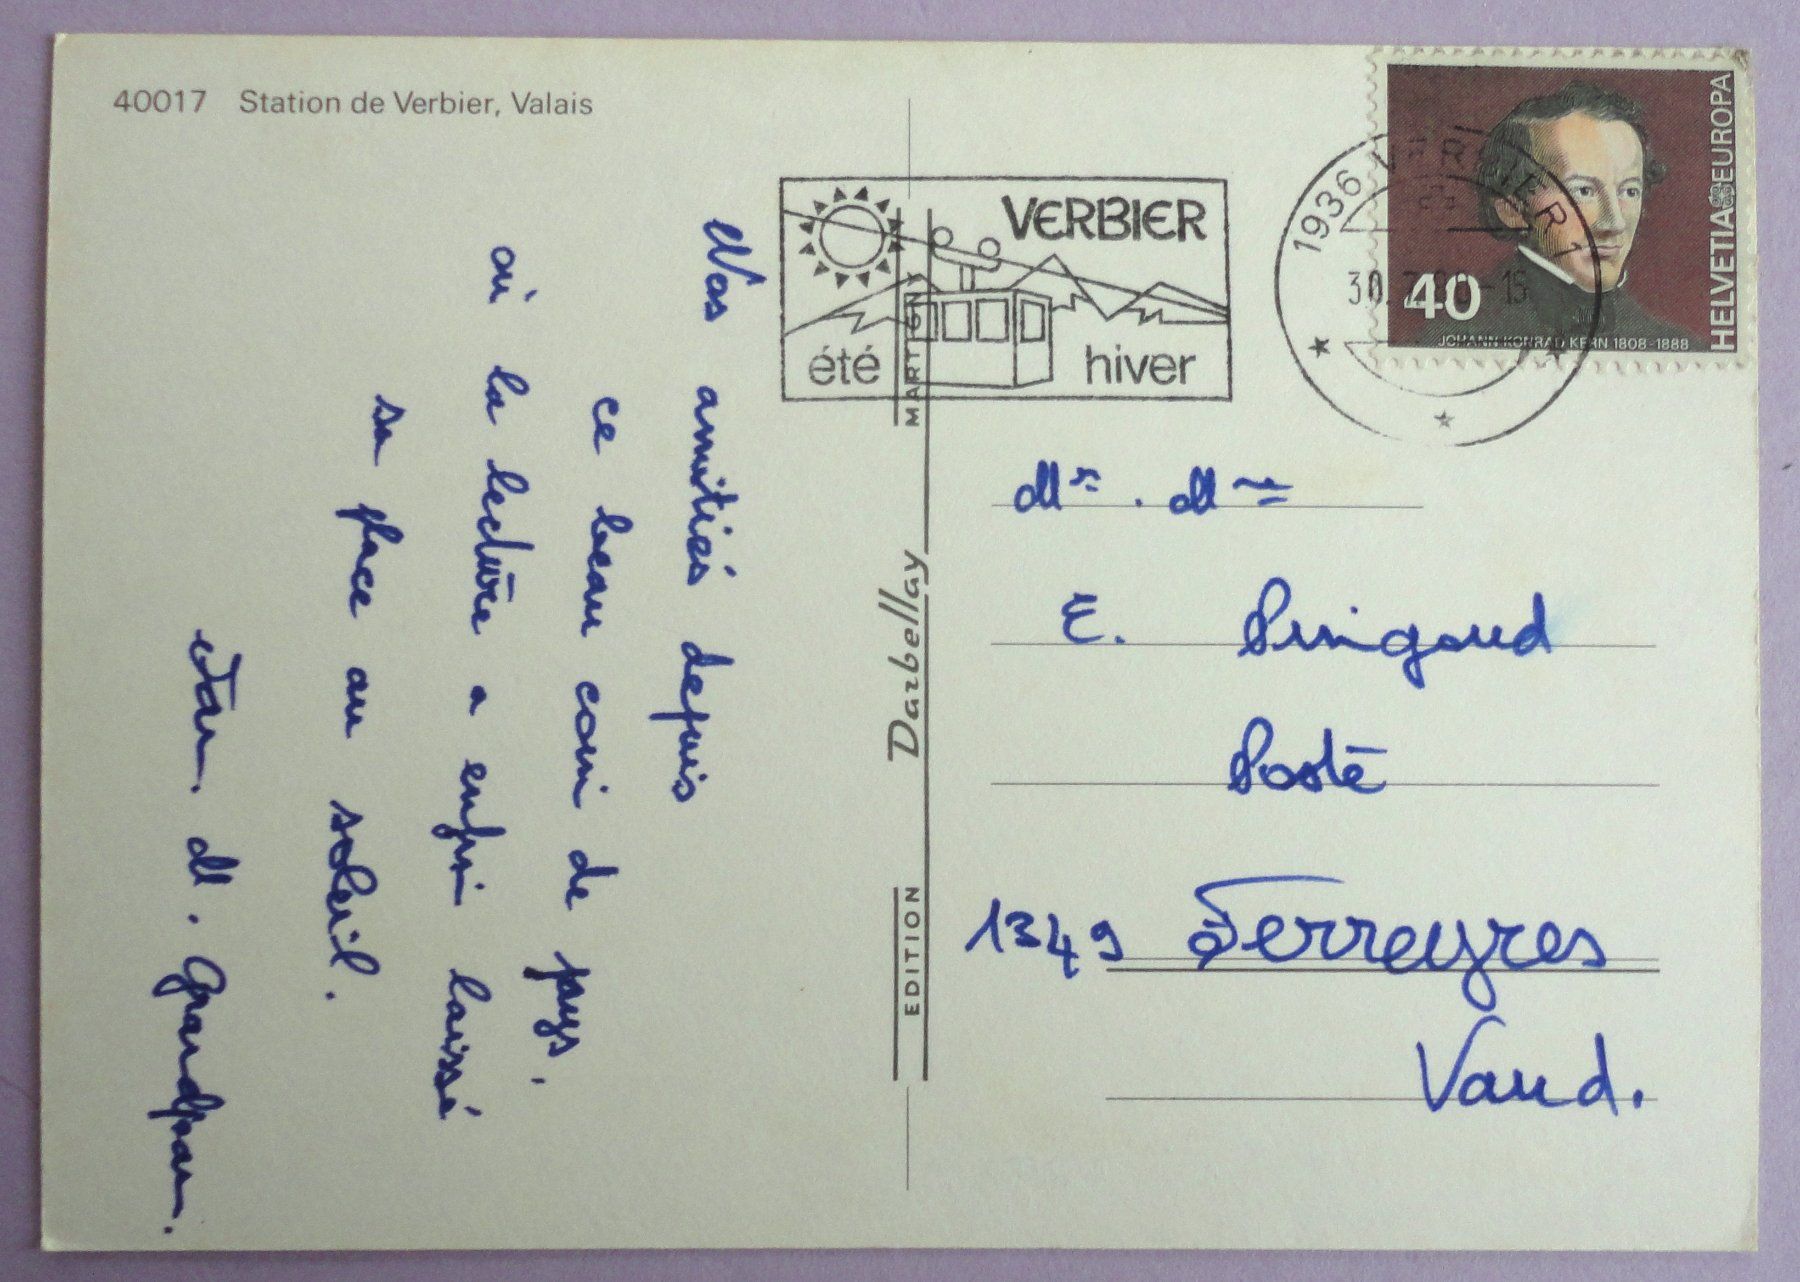 40017 Station de Verbier, Valais
Nos amitiés depuis
ce beau coin de pays.
où la lecture a enfin laissé
sa place au soleil.
M. Grandjean.
VERBIER
été hiver
1936 VERBIER 1
30.7.80-15
40
JOHANN KONRAD KERN 1808-1888
HELVETIA EUROPA
EDITION Darbellay MARTIGNY
Mr. Mme
E. Pingoud
Poste
1349 Ferreyres
Vaud.